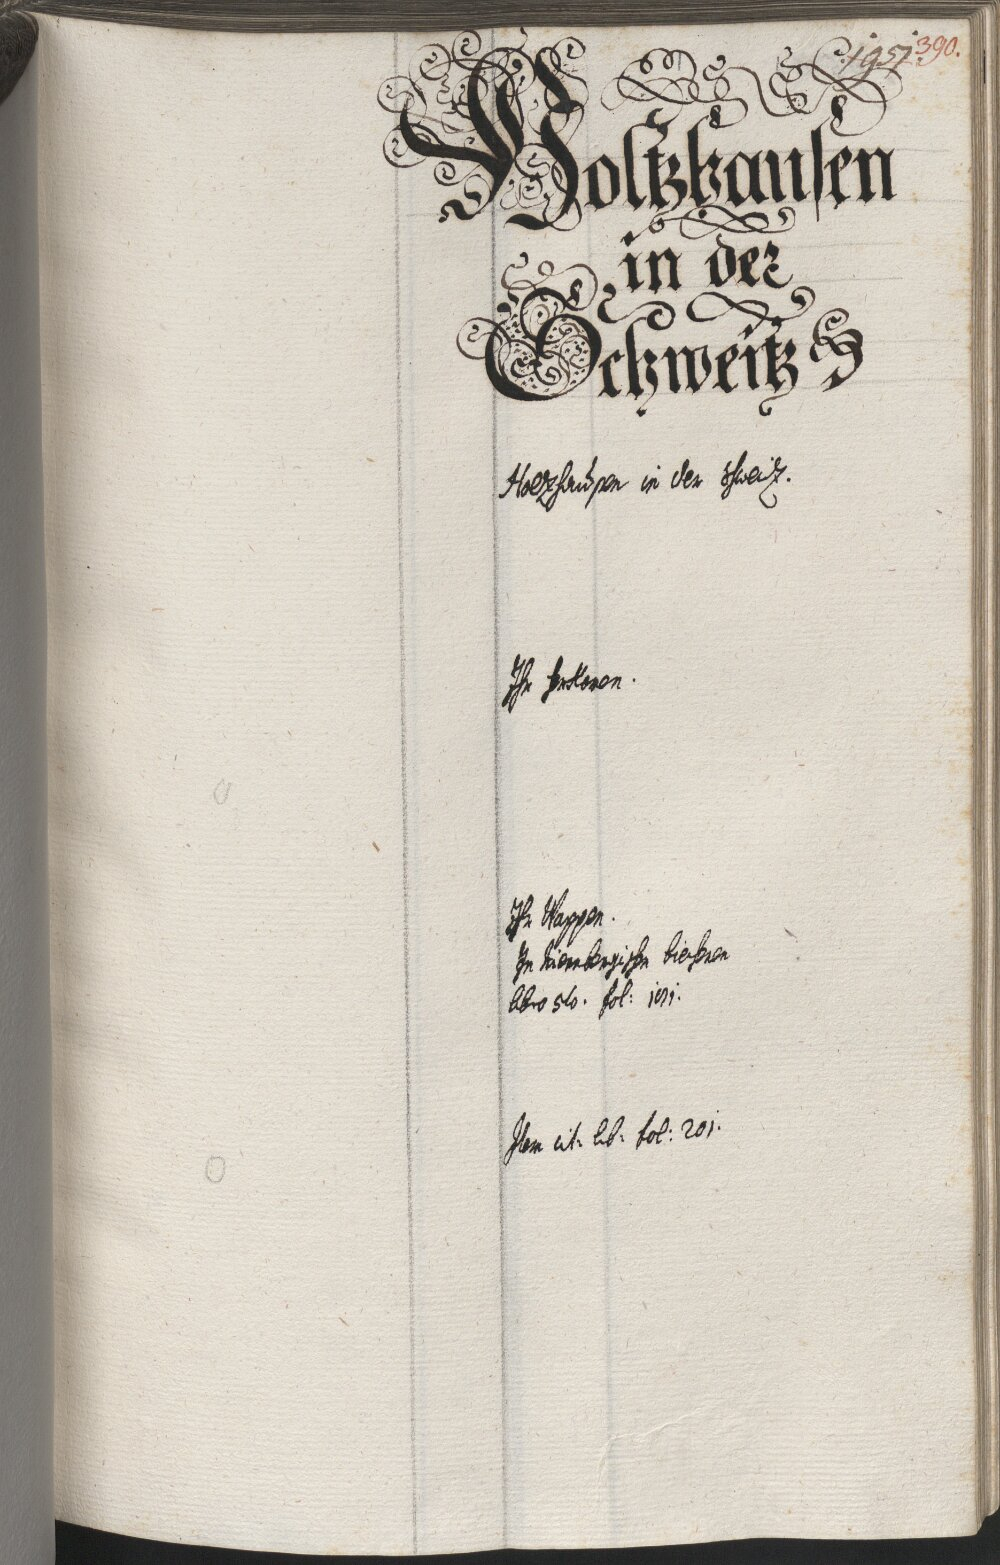 1951. 390.
Holtzhausen
in der
Schweitz
Holtzhausen in der Schweitz.
Ihr herkomen.
Ihr Wappen.
In Niernbergischen biechern
libro 5to. fol: 191.
Idem cit: lib: fol: 201.